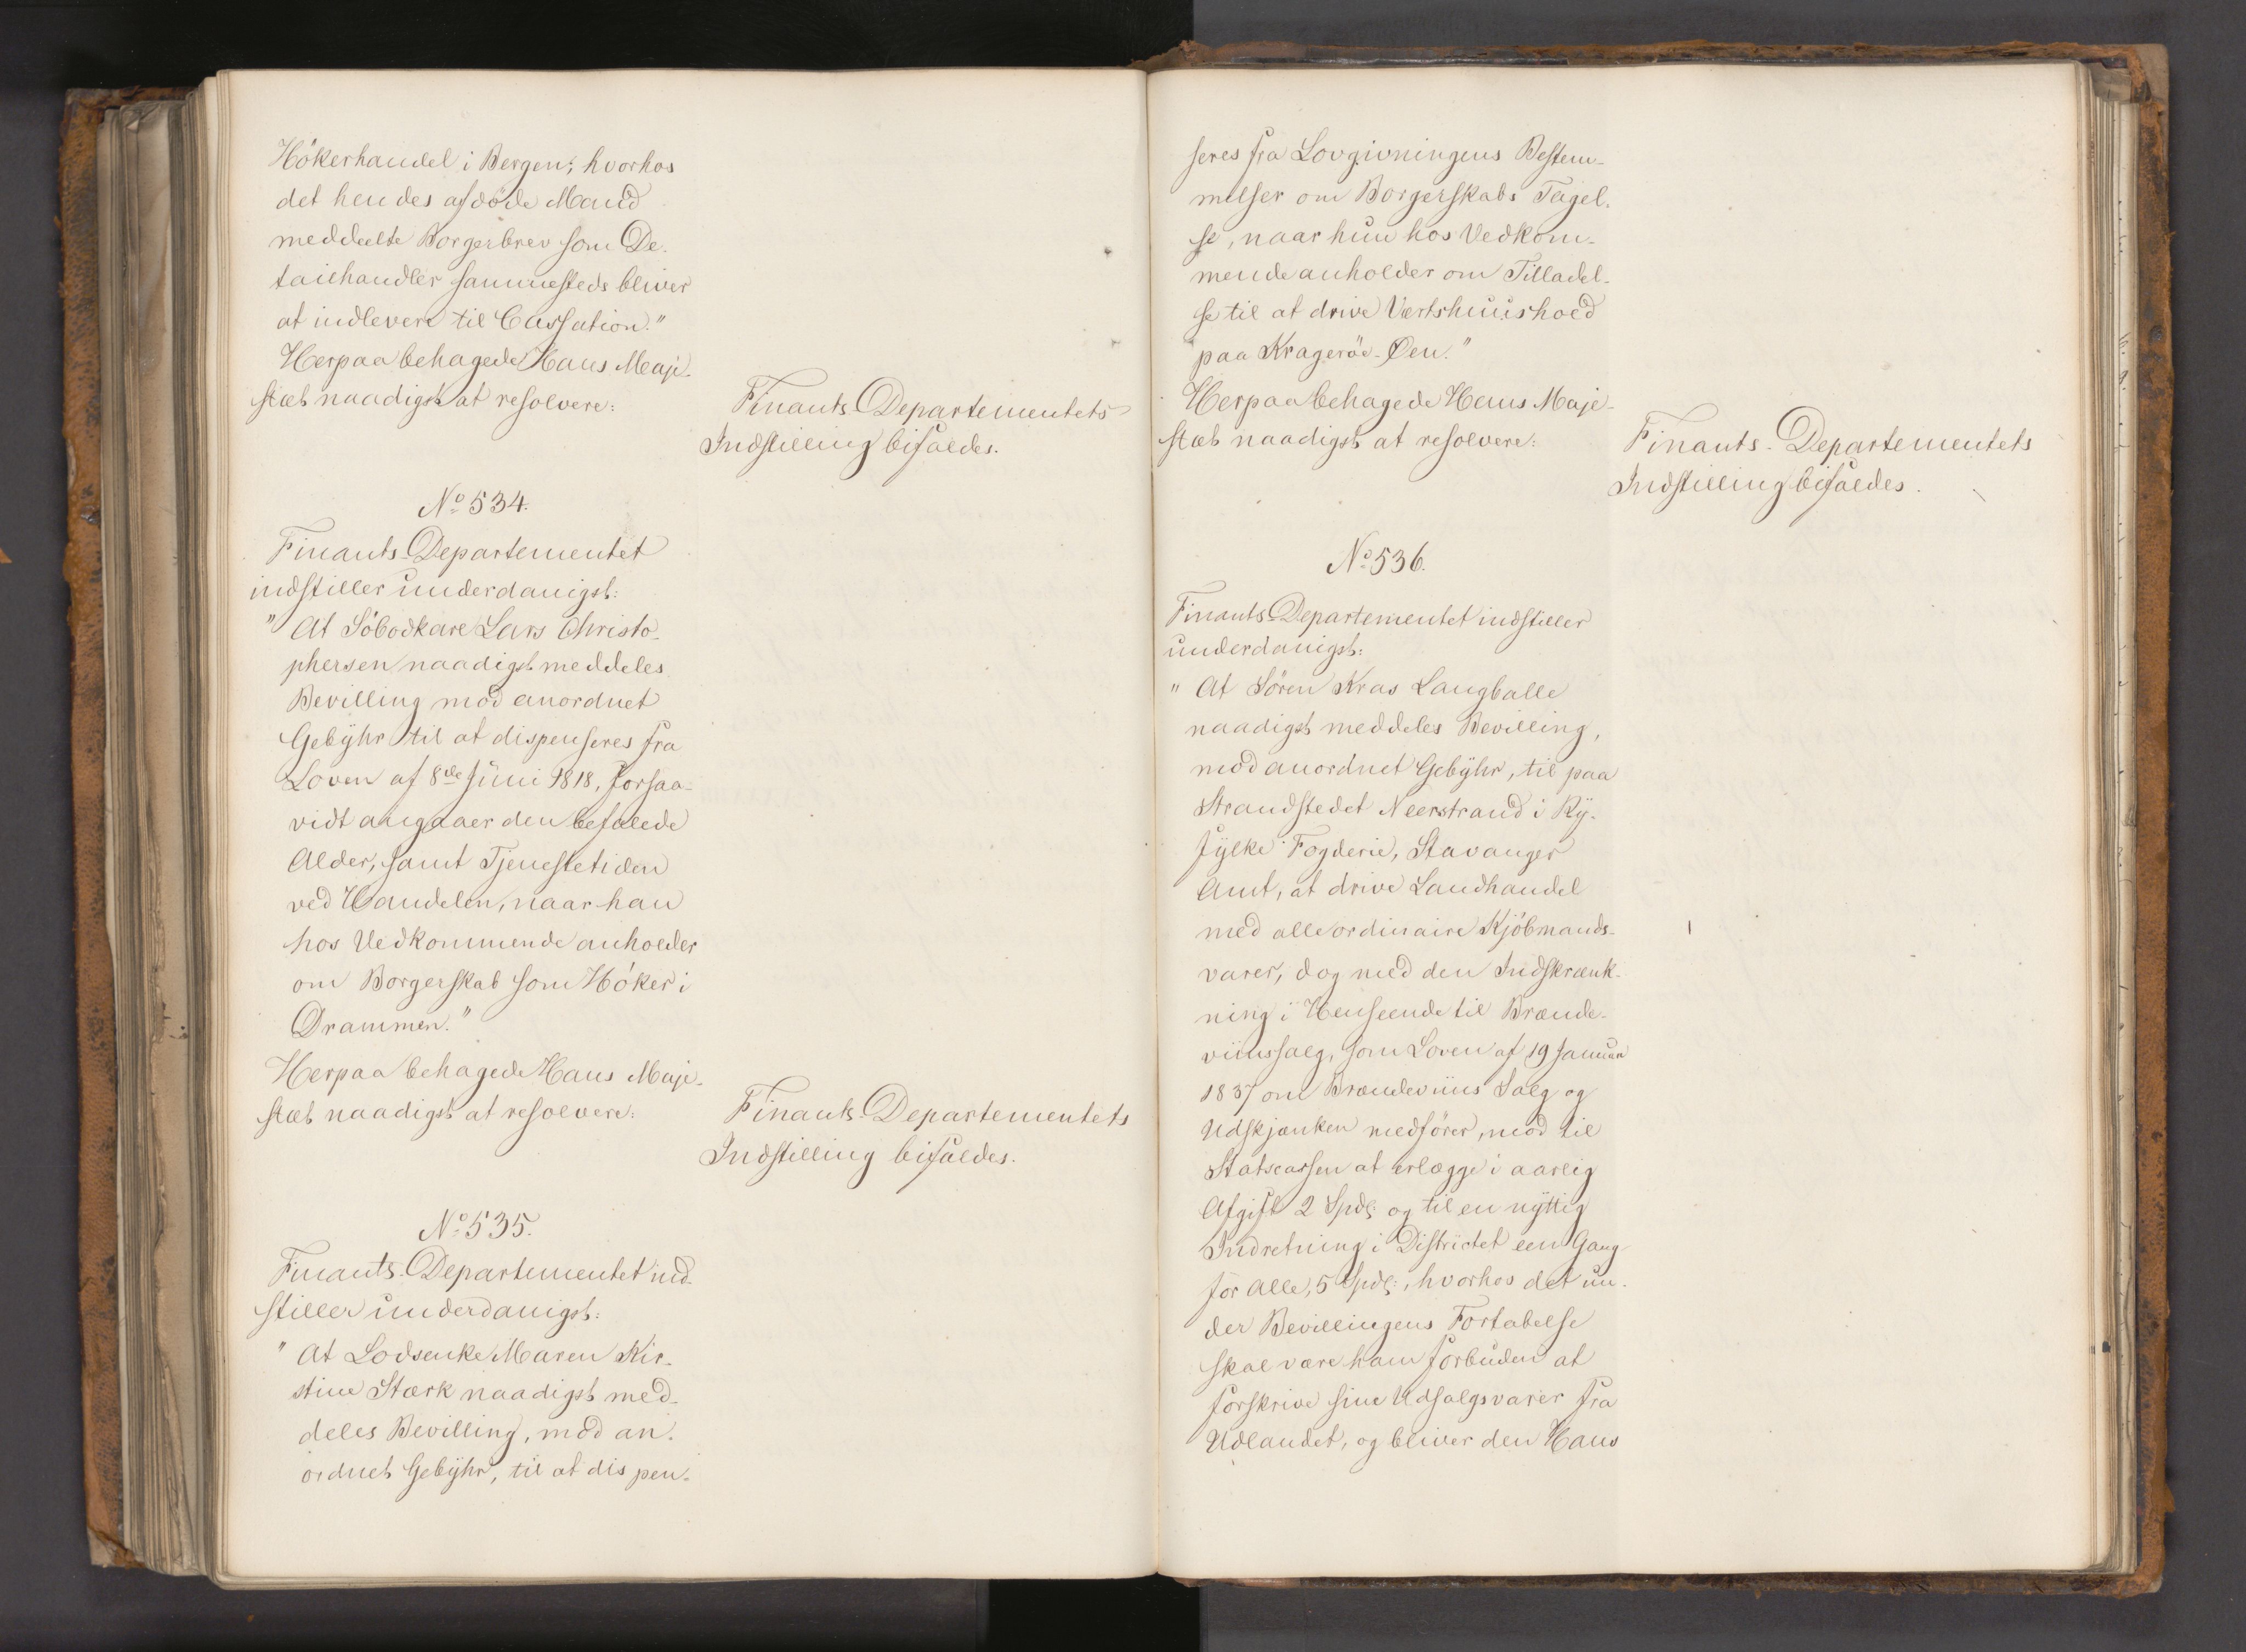 Hökerhandel i Bergen; hvorhos
det hendes afdöde Mand
meddeelte Borgerbrev som De-
tailhandler sammesteds bliver
at indlevere til Cassation."
Herpaa behagede Hans Maje-
stæt naadigst at resolvere:
Finants-Departementets
Indstilling bifaldes.
No 534.
Finants-Departementet
indstiller underdanigst:
"At Söbodkarl Lars Christo-
phersen naadigst meddeles
Bevilling mod anordnet
Gebyhr til at dispenseres fra
Loven af 8de Juni 1818, forsaa-
vidt angaaer den befalede
Alder, samt Tjenestetiden
ved Handelen, naar han
hos Vedkommende anholder
om Borgerskab som Höker i
Drammen."
Herpaa behagede Hans Maje-
stæt naadigst at resolvere:
Finants-Departementets
Indstilling bifaldes.
No 535.
Finants-Departementet ind-
stiller underdanigst:
"At Lodsenke Maren Kir-
stine Stærk naadigst med-
deles Bevilling, mod an-
ordnet Gebyhr, til at dispen-
seres fra Lovgivningens Bestem-
melser om Borgerskabs Tagel-
se, naar hun hos Vedkom-
mende anholder om Tilladel-
se til at drive Vertshuushold
paa Krageröe-Øen."
Herpaa behagede Hans Maje-
stæt naadigst at resolvere:
Finants-Departementets
Indstilling bifaldes.
No 536.
Finants-Departementet indstiller
underdanigst:
"At Sören Kras Langballe
naadigst meddeles Bevilling,
mod anordnet Gebyhr, til paa
Strandstedet Neerstrand i Ry-
fylke Fogderie, Stavanger
Amt, at drive Landhandel
med alle ordinaire Kjöbmands-
varer, dog med den Indskrænk-
ning i Henseende til Brænde-
viinssalg, som Loven af 19 Januar
1837 om Brændeviins Salg og
Udskjænken medförer, mod til
Statscassen at erlægge i aarlig
Afgift 2 Spdl: og til en nyttig
Indretning i Districtet een Gang
for alle, 5 Spdl:, hvorhos det un-
der Bevillingens Fortabelse
skal være ham forbuden at
forskrive sine Udsalgsvarer fra
Udlandet, og bliver den Hans